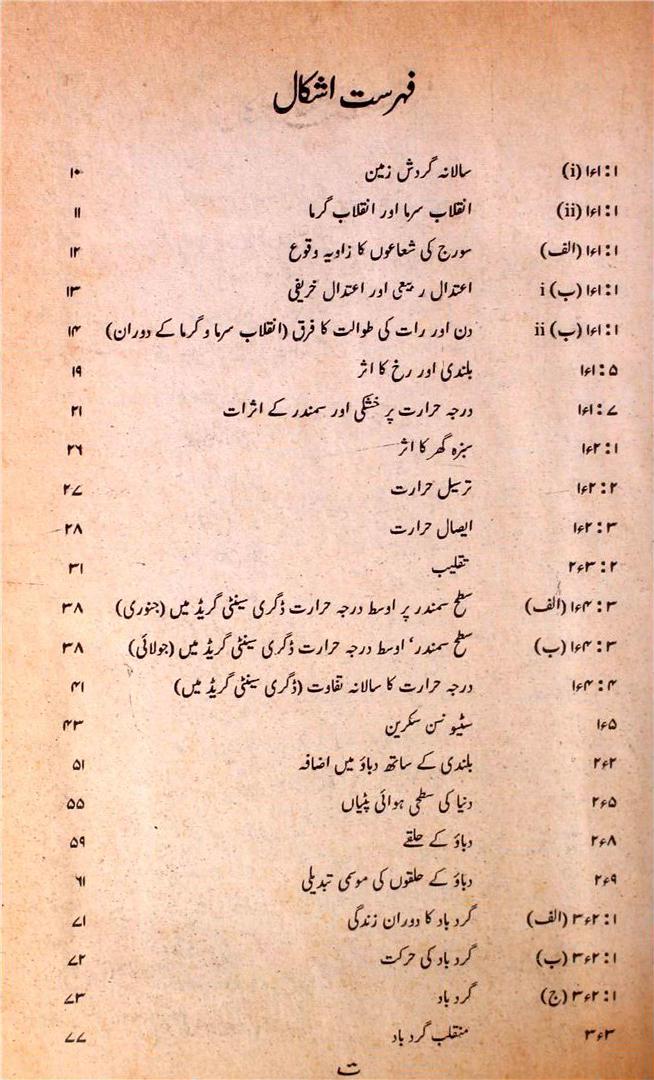 فہرست اشکال
۱:۱ء۱ (i) سالانہ گردش زمین ۱۰
۱:۱ء۱ (ii) انقلاب سرما اور انقلاب گرما ۱۱
۱:۱ء۱ (الف) سورج کی شعاعوں کا زاویہ وقوع ۱۲
۱:۱ء۱ (ب) i اعتدال ربیعی اور اعتدال خریفی ۱۳
۱:۱ء۱ (ب) ii دن اور رات کی طوالت کا فرق (انقلاب سرما و گرما کے دوران) ۱۴
۵:۱ء۱ بلندی اور رخ کا اثر ۱۹
۷:۱ء۱ درجہ حرارت پر خشکی اور سمندر کے اثرات ۲۱
۱:۲ء۱ سبزہ گھر کا اثر ۲۶
۲:۲ء۱ ترسیل حرارت ۲۷
۳:۲ء۱ ایصال حرارت ۲۸
۲:۳ء۲ تقلیب ۳۱
۳:۴ء۱ (الف) سطح سمندر پر اوسط درجہ حرارت ڈگری سینٹی گریڈ میں (جنوری) ۳۸
۳:۴ء۱ (ب) سطح سمندر، اوسط درجہ حرارت ڈگری سینٹی گریڈ میں (جولائی) ۳۸
۴:۴ء۱ درجہ حرارت کا سالانہ تفاوت (ڈگری سینٹی گریڈ میں) ۴۱
۱ء۵ سٹیو نسن سکرین ۴۳
۲ء۲ بلندی کے ساتھ دباؤ میں اضافہ ۵۱
۲ء۵ دنیا کی سطحی ہوائی پٹیاں ۵۵
۲ء۸ دباؤ کے حلقے ۵۹
۲ء۹ دباؤ کے حلقوں کی موسمی تبدیلی ۶۱
۱:۲ء۳ (الف) گرد باد کا دوران زندگی ۷۱
۱:۲ء۳ (ب) گرد باد کی حرکت ۷۲
۱:۲ء۳ (ج) گرد باد ۷۳
۳ء۳ منقلب گرد باد ۷۷
ت